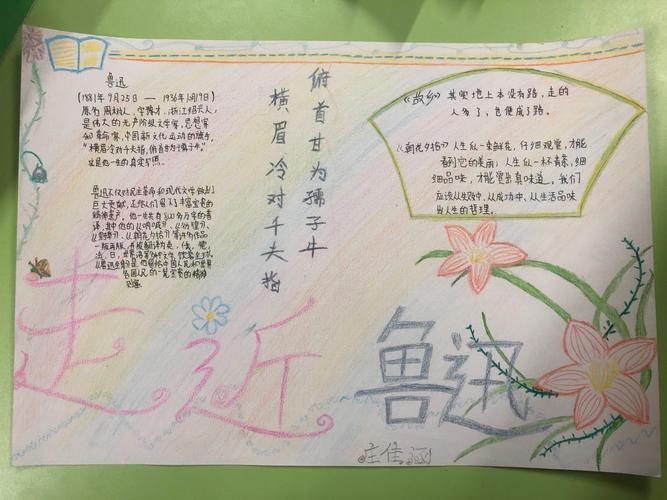 鲁迅
(1881年9月25日——1936年10月19日)
原名周树人，字豫才，浙江绍兴人，
是伟大的无产阶级文学家、思想家
和革命家，中国新文化运动的旗手，
"横眉冷对千夫指，俯首甘为孺子牛。"
这是他一生的真实写照。
鲁迅不仅对民主革命和现代文学做出
巨大贡献，还给人们留下了丰富宝贵的
精神遗产，他一生共有800多万字的著
译，其中他的《呐喊》、《彷徨》、
《野草》、《朝花夕拾》等许多作品
一版再版，并被翻译为英、俄、德、
法、日、世界语等多种文字，饮誉全球。
《鲁迅全集》是他留给中国人民和世界
各国人民的一笔宝贵的精神
财富
横眉冷对千夫指
俯首甘为孺子牛
《故乡》其实地上本没有路，走的
人多了，也便成了路。
《朝花夕拾》人生似一束鲜花，仔细观赏，才能
看到它的美丽；人生似一杯清茶，细
细品味，才能赏出真味道。我们
应该从失败中、从成功中、从生活品味
出人生的哲理。
走近
鲁迅
庄佳涵